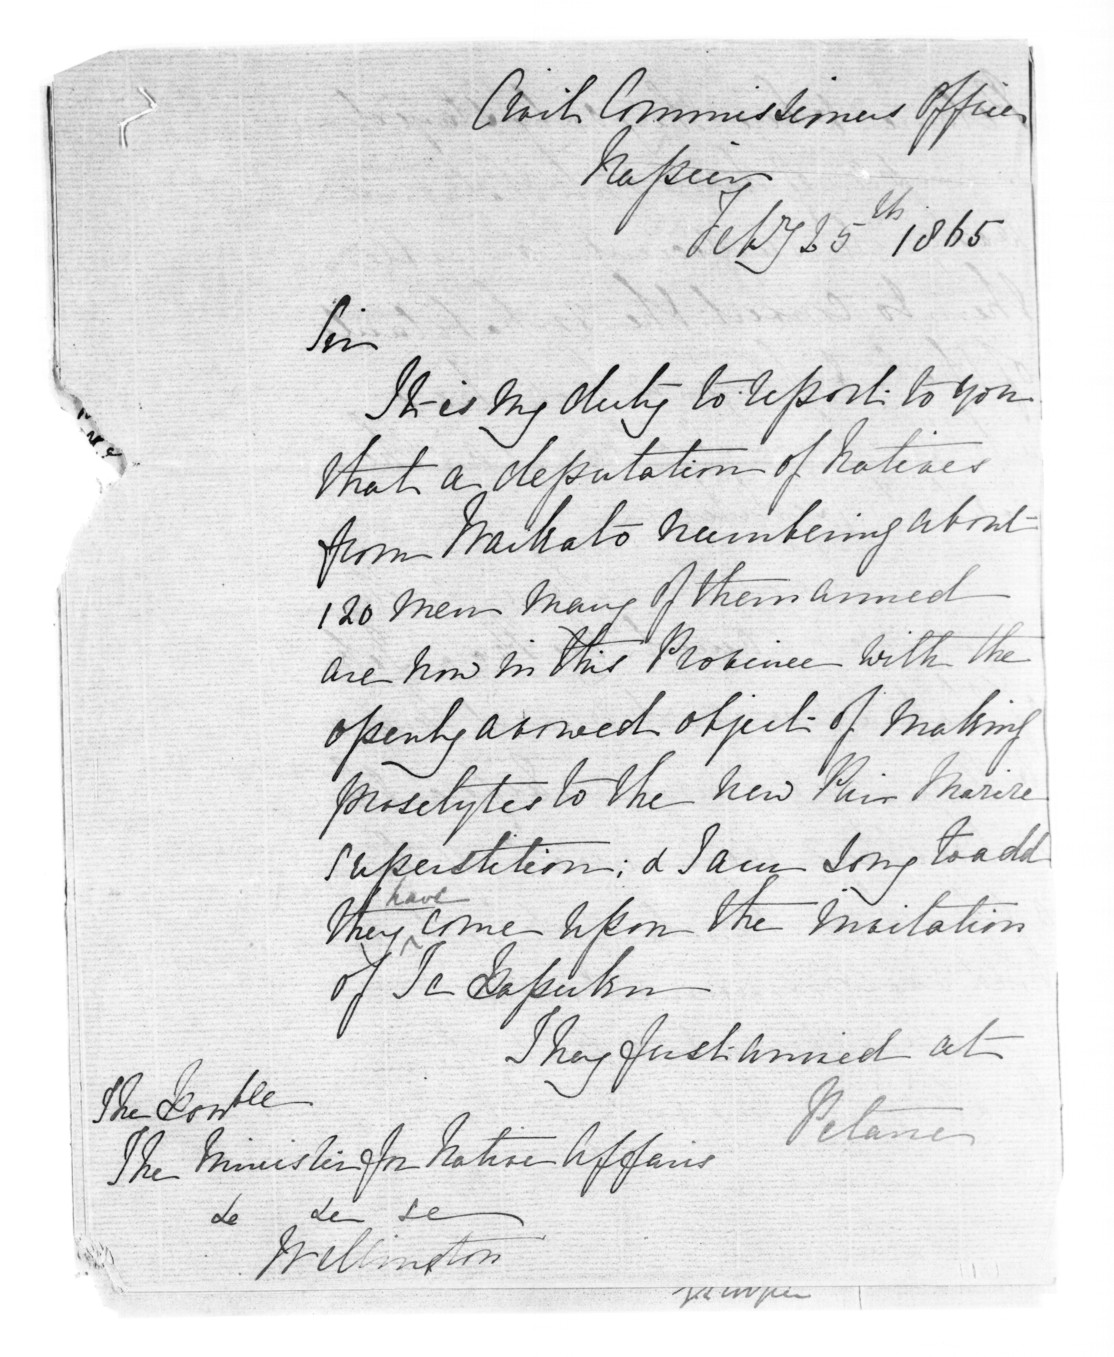 Civil Commissioners Office
Napier
Feby 25th 1865
Sir
It is my duty to report to you
that a deputation of Natives
from Waikato numbering about
120 men many of them armed
are now in this Province with the
openly avowed object of making
proselytes to the new Pai Marire
superstition; & I am sorry to add
they have come upon the invitation
of Te Hapuku
They first arrived at
Petane
The Honble
The Minister for Native Affairs
&c &c &c
Wellington